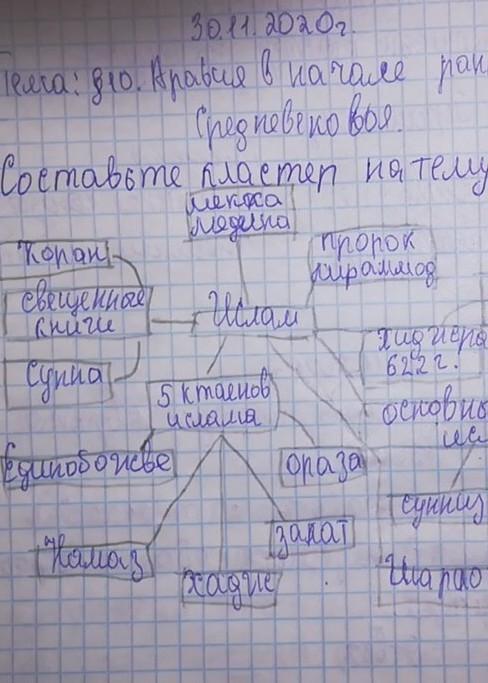 30.11.2020г.
Тема: §10. Аравия в начале ран
Средневековья.
Составьте кластер на тему
Мекка
Медина
Коран
пророк
священные
книги
Ислам
хиджра
622 г.
Сунна
5 ктаенов
ислама
основны
ис
Единобожие
ораза
сунниз
закат
Намаз
хадж